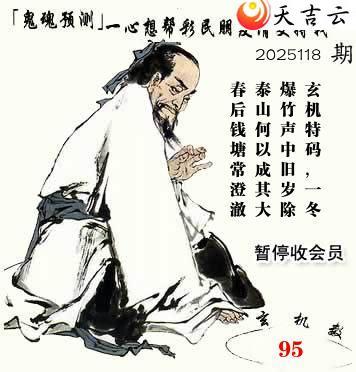 天吉云
「鬼魂预测」一心想帮彩民朋友
2025118 期
玄机特码，一冬
爆竹声中旧岁除
泰山何以成其大
春后钱塘常澄澈
暂停收会员
玄机数
95